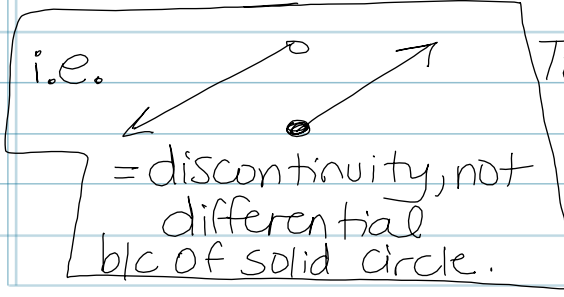 i.e.
= discontinuity, not
differential
b/c of solid circle.